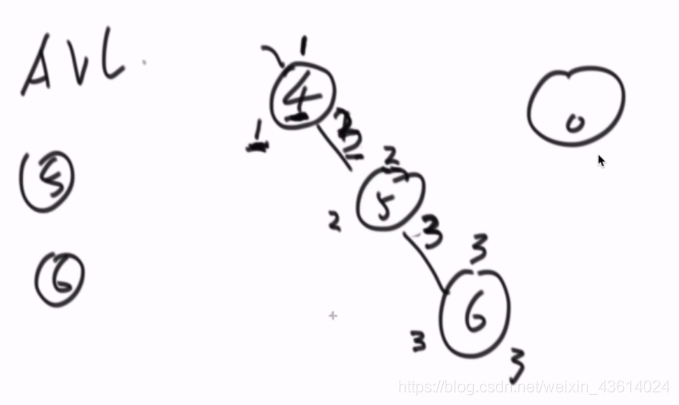 AVL.
1
4
1
2
2
5
5
2
3
3
0
6
6
3
3
https://blog.csdn.net/weixin_43614024